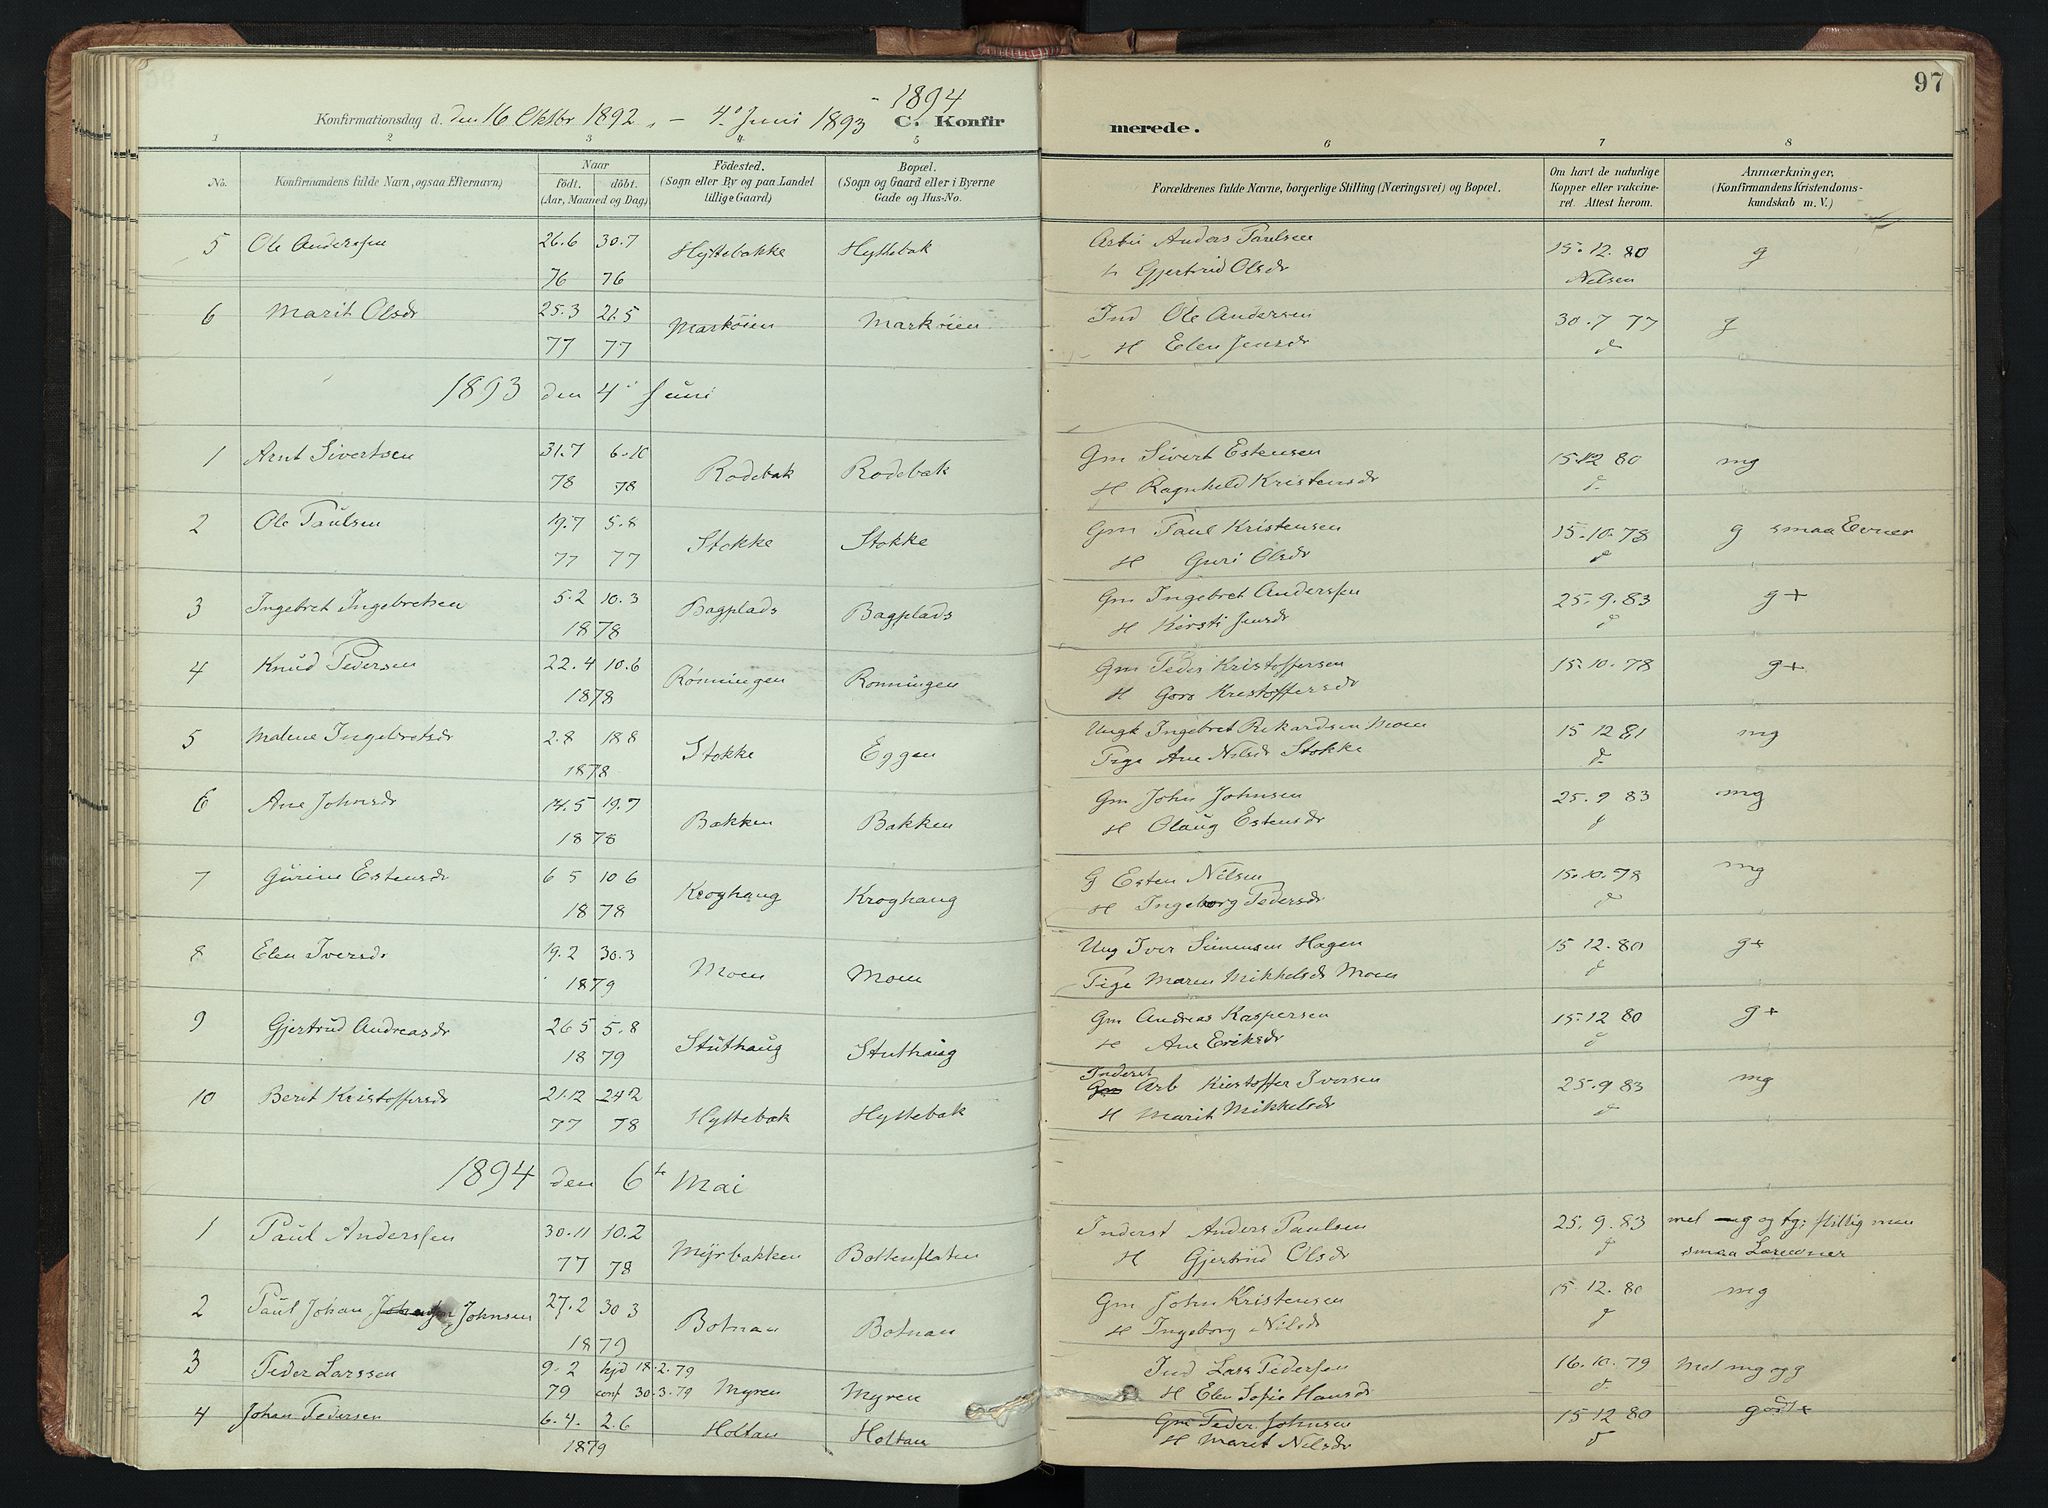 97
1894
Konfirmationsdag d. den 16 Oktbr 1892, – 4. Juni 1893 C. Konfir
merede.
1 2 3 4. 5 6 7 8
No.
Konfirmandens fulde Navn, ogsaa Efternavn)
Naar
födt. döbt.
(Aar, Maaned og Dag)
Födested.
(Sogn eller By og paa Landet
tillige Gaard)
Bopæl.
(Sogn og Gaard eller i Byerne
Gade og Hus-No.
Forældrenes fulde Navne, borgerlige Stilling (Næringsvei) og Bopæl.
Om havt de naturlige
Kopper eller vakcine-
ret. Attest herom.
Anmærkninger,
(Konfirmandens Kristendoms-
kundskab m. V.)
5 Ole Anderssen 26.6 30.7 Hyttebakke Hyttebak Anders Paulsen 15.12.80 g
76 76 Gjertrud Olsdr Nilsen
6 Marit Olsdr 25.3 21.5 Markøien Markøien Ind Ole Andersen 30.7 77 g
77 77 H Elen Jensdr d
1893 den 4 Juni
1 Arnt Sivertsen 31.7 6.10 Rodebak Rodebak Gm Sivert Estensen 15.12 80 mg
78 78 H Ragnhild Kristensdr d.
2 Ole Paulsen 19.7 5.8 Stokke Stokke Gm Paul Kristensen 15.10.78 g smaa Evner
77 77 H Guri Olsdr d
3 Ingebret Ingebretsen 5.2 10.3 Bagplads Bagplads Gm Ingebret Anderssen 25.9.83 g+
1878 H Kirsti Jensdr d
4 Knud Pedersen 22.4 10.6 Rønningen Ronningen Gm Peder Kristoffersen 15.10.78 g+
1878 H Goro Kristoffersdr
5 Malene Ingebretsdr 2.8 18.8 Stokke Eggen Ungk Ingebret Rikardsen Moen 15 12 81 mg
1878 Pige Ane Nilsdr Stokke d.
6 Ane Johnsdr 14.5 19.7 Bakken Bakken Gm John Johnsen 25.9 83 mg
1878 H Olaug Estensdr d
7 Gurine Estensdr 6 5 10 6 Kroghaug Kroghaug G Esten Nilsen 15.10.78 mg
1878 H Ingeborg Pedersdr d
8 Elen Iversdr 19.2 30.3 Moen Moen Ung Iver Simensen Hagen 15 12.80 g+
1879 Pige Maren Mikkelsdr Moen d
9 Gjertrud Andreasdr 26 5 5.8 Stuthaug Stuthaug Gm Andreas Kaspersen 15.12 80 g+
1879 H Ane Eriksdr d
Inderst
10 Berit Kristoffersdr 21.12 24 2 Hyttebak Hyttebak Gm Arb Kristoffer Iversen 25.9 83 mg
77 78 H Marit Mikkelsdr d
1894 den 6 Mai
1 Paul Anderssen 30.11 10.2 Myrbakken Bottenflaten Inderst Anders Paulsen 25.9.83 mel mg og tg; flittig men
77 78 H Gjertrud Olsdr d smaa Læreevner
2 Paul Johan Johnsen 27.2 30 3 Botnan Botnan Gm John Kristensen 15.12.80 mg
1879 H Ingeborg Nilsdr d
3 Peder Larssen 9.2 hjd 18.2.79 Myren Myren Ind Lars Pederssen 16.10.79 Mel mg og g
79 conf 30.3.79 H Elen Sofie Hansdr d.
4 Johan Pedersen 6.4. 2.6 Holtan Holtan Gm Peder Johnsen 15 12 80 godt +
1879 H Marit Nilsdr d